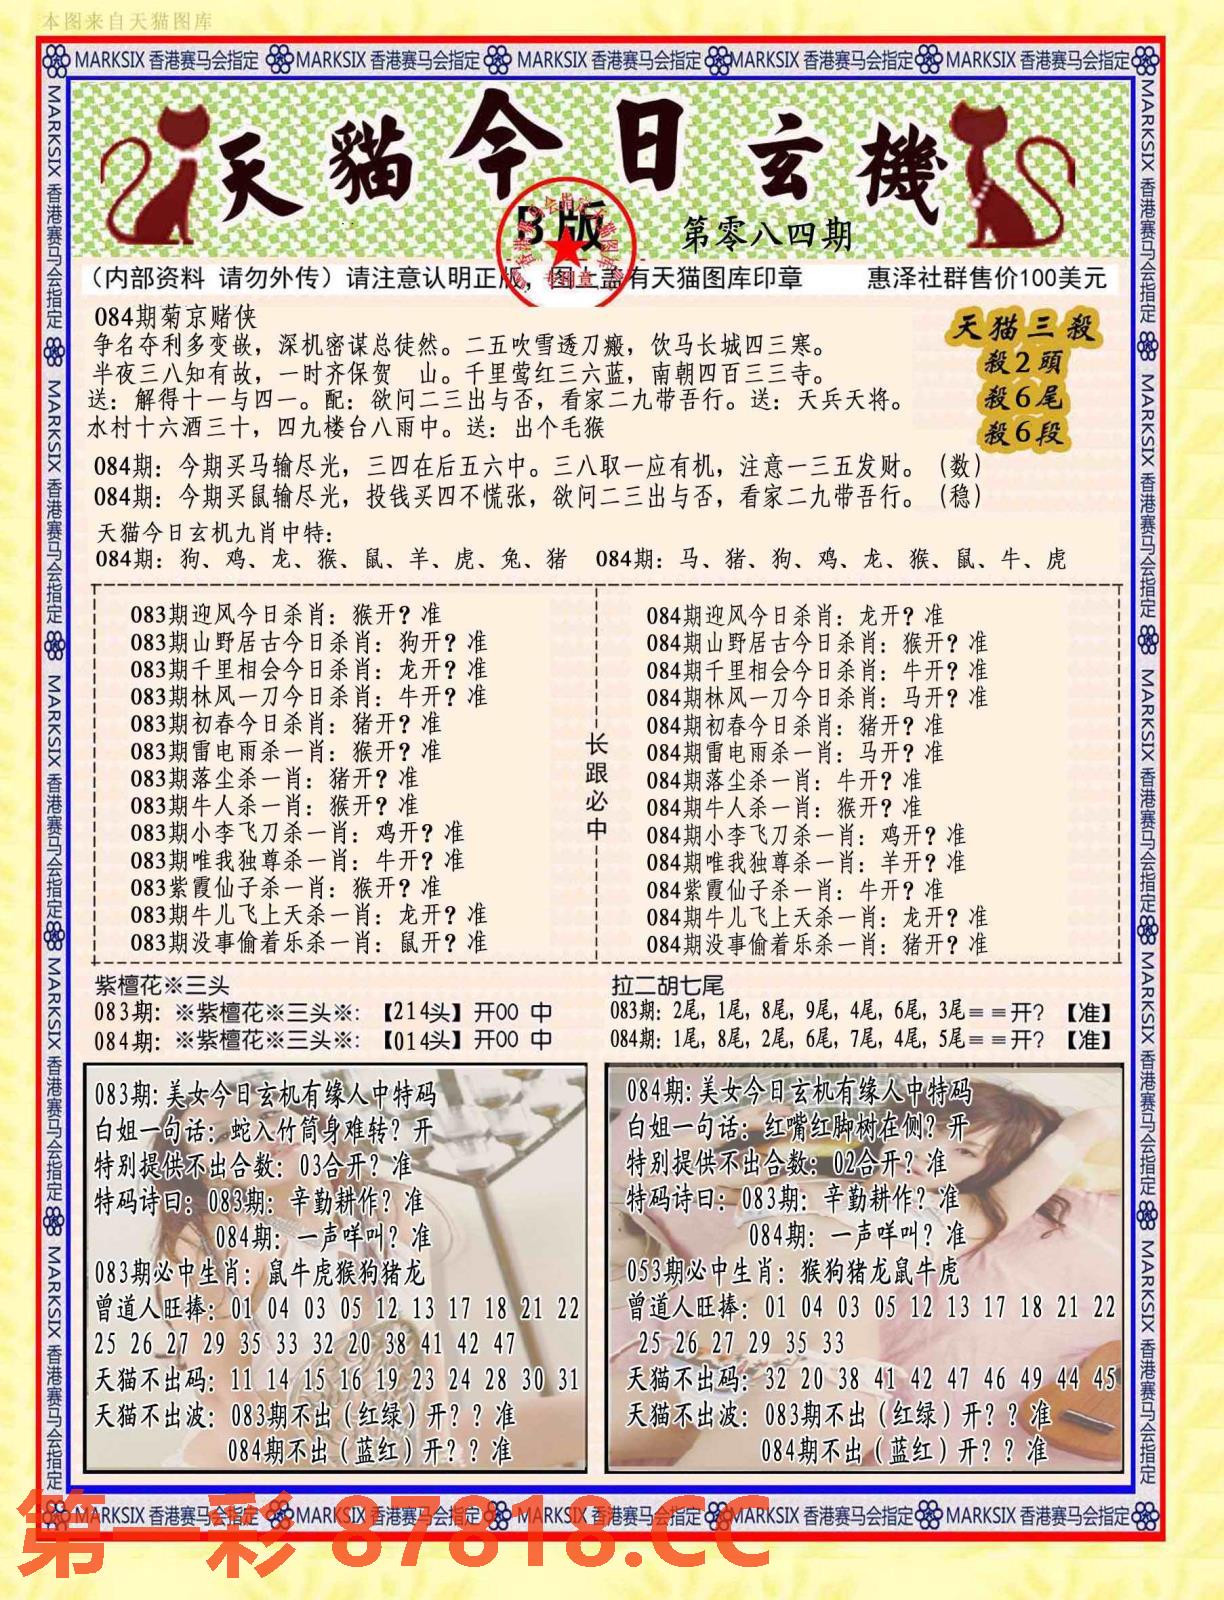 本图来自天猫图库
MARKSIX 香港赛马会指定 MARKSIX 香港赛马会指定 MARKSIX 香港赛马会指定 MARKSIX 香港赛马会指定 MARKSIX 香港赛马会指定
天貓今日玄機
B版
第零八四期
（内部资料 请勿外传）请注意认明正版，图上盖有天猫图库印章 惠泽社群售价100美元
084期菊京赌侠
争名夺利多变嵌，深机密谋总徒然。二五吹雪透刀瘢，饮马长城四三寒。
半夜三八知有故，一时齐保贺 山。千里莺红三六蓝，南朝四百三三寺。
送：解得十一与四一。配：欲问二三出与否，看家二九带吾行。送：天兵天将。
水村十六酒三十，四九楼台八雨中。送：出个毛猴
天猫三殺
殺2頭
殺6尾
殺6段
084期：今期买马输尽光，三四在后五六中。三八取一应有机，注意一三五发财。（数）
084期：今期买鼠输尽光，投钱买四不慌张，欲问二三出与否，看家二九带吾行。（稳）
天猫今日玄机九肖中特：
084期：狗、鸡、龙、猴、鼠、羊、虎、兔、猪 084期：马、猪、狗、鸡、龙、猴、鼠、牛、虎
083期迎风今日杀肖：猴开？准
083期山野居古今日杀肖：狗开？准
083期千里相会今日杀肖：龙开？准
083期林风一刀今日杀肖：牛开？准
083期初春今日杀肖：猪开？准
083期雷电雨杀一肖：猴开？准
083期落尘杀一肖：猪开？准
083期牛人杀一肖：猴开？准
083期小李飞刀杀一肖：鸡开？准
083期唯我独尊杀一肖：牛开？准
083紫霞仙子杀一肖：猴开？准
083期牛儿飞上天杀一肖：龙开？准
083期没事偷着乐杀一肖：鼠开？准
长跟必中
084期迎风今日杀肖：龙开？准
084期山野居古今日杀肖：猴开？准
084期千里相会今日杀肖：牛开？准
084期林风一刀今日杀肖：马开？准
084期初春今日杀肖：猪开？准
084期雷电雨杀一肖：马开？准
084期落尘杀一肖：牛开？准
084期牛人杀一肖：猴开？准
084期小李飞刀杀一肖：鸡开？准
084期唯我独尊杀一肖：羊开？准
084紫霞仙子杀一肖：牛开？准
084期牛儿飞上天杀一肖：龙开？准
084期没事偷着乐杀一肖：猪开？准
紫檀花※三头
083期：※紫檀花※三头※:【214头】开00 中
084期：※紫檀花※三头※:【014头】开00 中
拉二胡七尾
083期：2尾，1尾，8尾，9尾，4尾，6尾，3尾==开？【准】
084期：1尾，8尾，2尾，6尾，7尾，4尾，5尾==开？【准】
083期：美女今日玄机有缘人中特码
白姐一句话：蛇入竹筒身难转？开
特别提供不出合数：03合开？准
特码诗曰：083期：辛勤耕作？准
084期：一声咩叫？准
083期必中生肖：鼠牛虎猴狗猪龙
曾道人旺捧：01 04 03 05 12 13 17 18 21 22
25 26 27 29 35 33 32 20 38 41 42 47
天猫不出码：11 14 15 16 19 23 24 28 30 31
天猫不出波：083期不出（红绿）开？？准
084期不出（蓝红）开？？准
084期：美女今日玄机有缘人中特码
白姐一句话：红嘴红脚树在侧？开
特别提供不出合数：02合开？准
特码诗曰：083期：辛勤耕作？准
084期：一声咩叫？准
053期必中生肖：猴狗猪龙鼠牛虎
曾道人旺捧：01 04 03 05 12 13 17 18 21 22
25 26 27 29 35 33
天猫不出码：32 20 38 41 42 47 46 49 44 45
天猫不出波：083期不出（红绿）开？？准
084期不出（蓝红）开？？准
MARKSIX 香港赛马会指定 MARKSIX 香港赛马会指定 MARKSIX 香港赛马会指定 MARKSIX 香港赛马会指定 MARKSIX 香港赛马会指定
MARKSIX 香港赛马会指定 MARKSIX 香港赛马会指定 MARKSIX 香港赛马会指定 MARKSIX 香港赛马会指定 MARKSIX 香港赛马会指定
MARKSIX 香港赛马会指定 MARKSIX 香港赛马会指定 MARKSIX 香港赛马会指定 MARKSIX 香港赛马会指定 MARKSIX 香港赛马会指定
第一彩 87818.CC